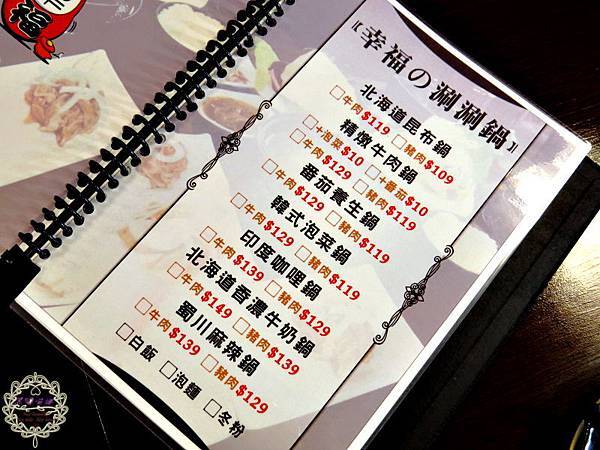 福
幸福の涮涮鍋
北海道昆布鍋
□牛肉$119 □豬肉$109
精燉牛肉鍋
□+泡菜$10 □+番茄$10
□牛肉$129 □豬肉$119
番茄養生鍋
□牛肉$129 □豬肉$119
韓式泡菜鍋
□牛肉$129 □豬肉$119
印度咖哩鍋
□牛肉$139 □豬肉$129
北海道香濃牛奶鍋
□牛肉$149 □豬肉$139
蜀川麻辣鍋
□牛肉$139 □豬肉$129
□白飯 □泡麵 □冬粉